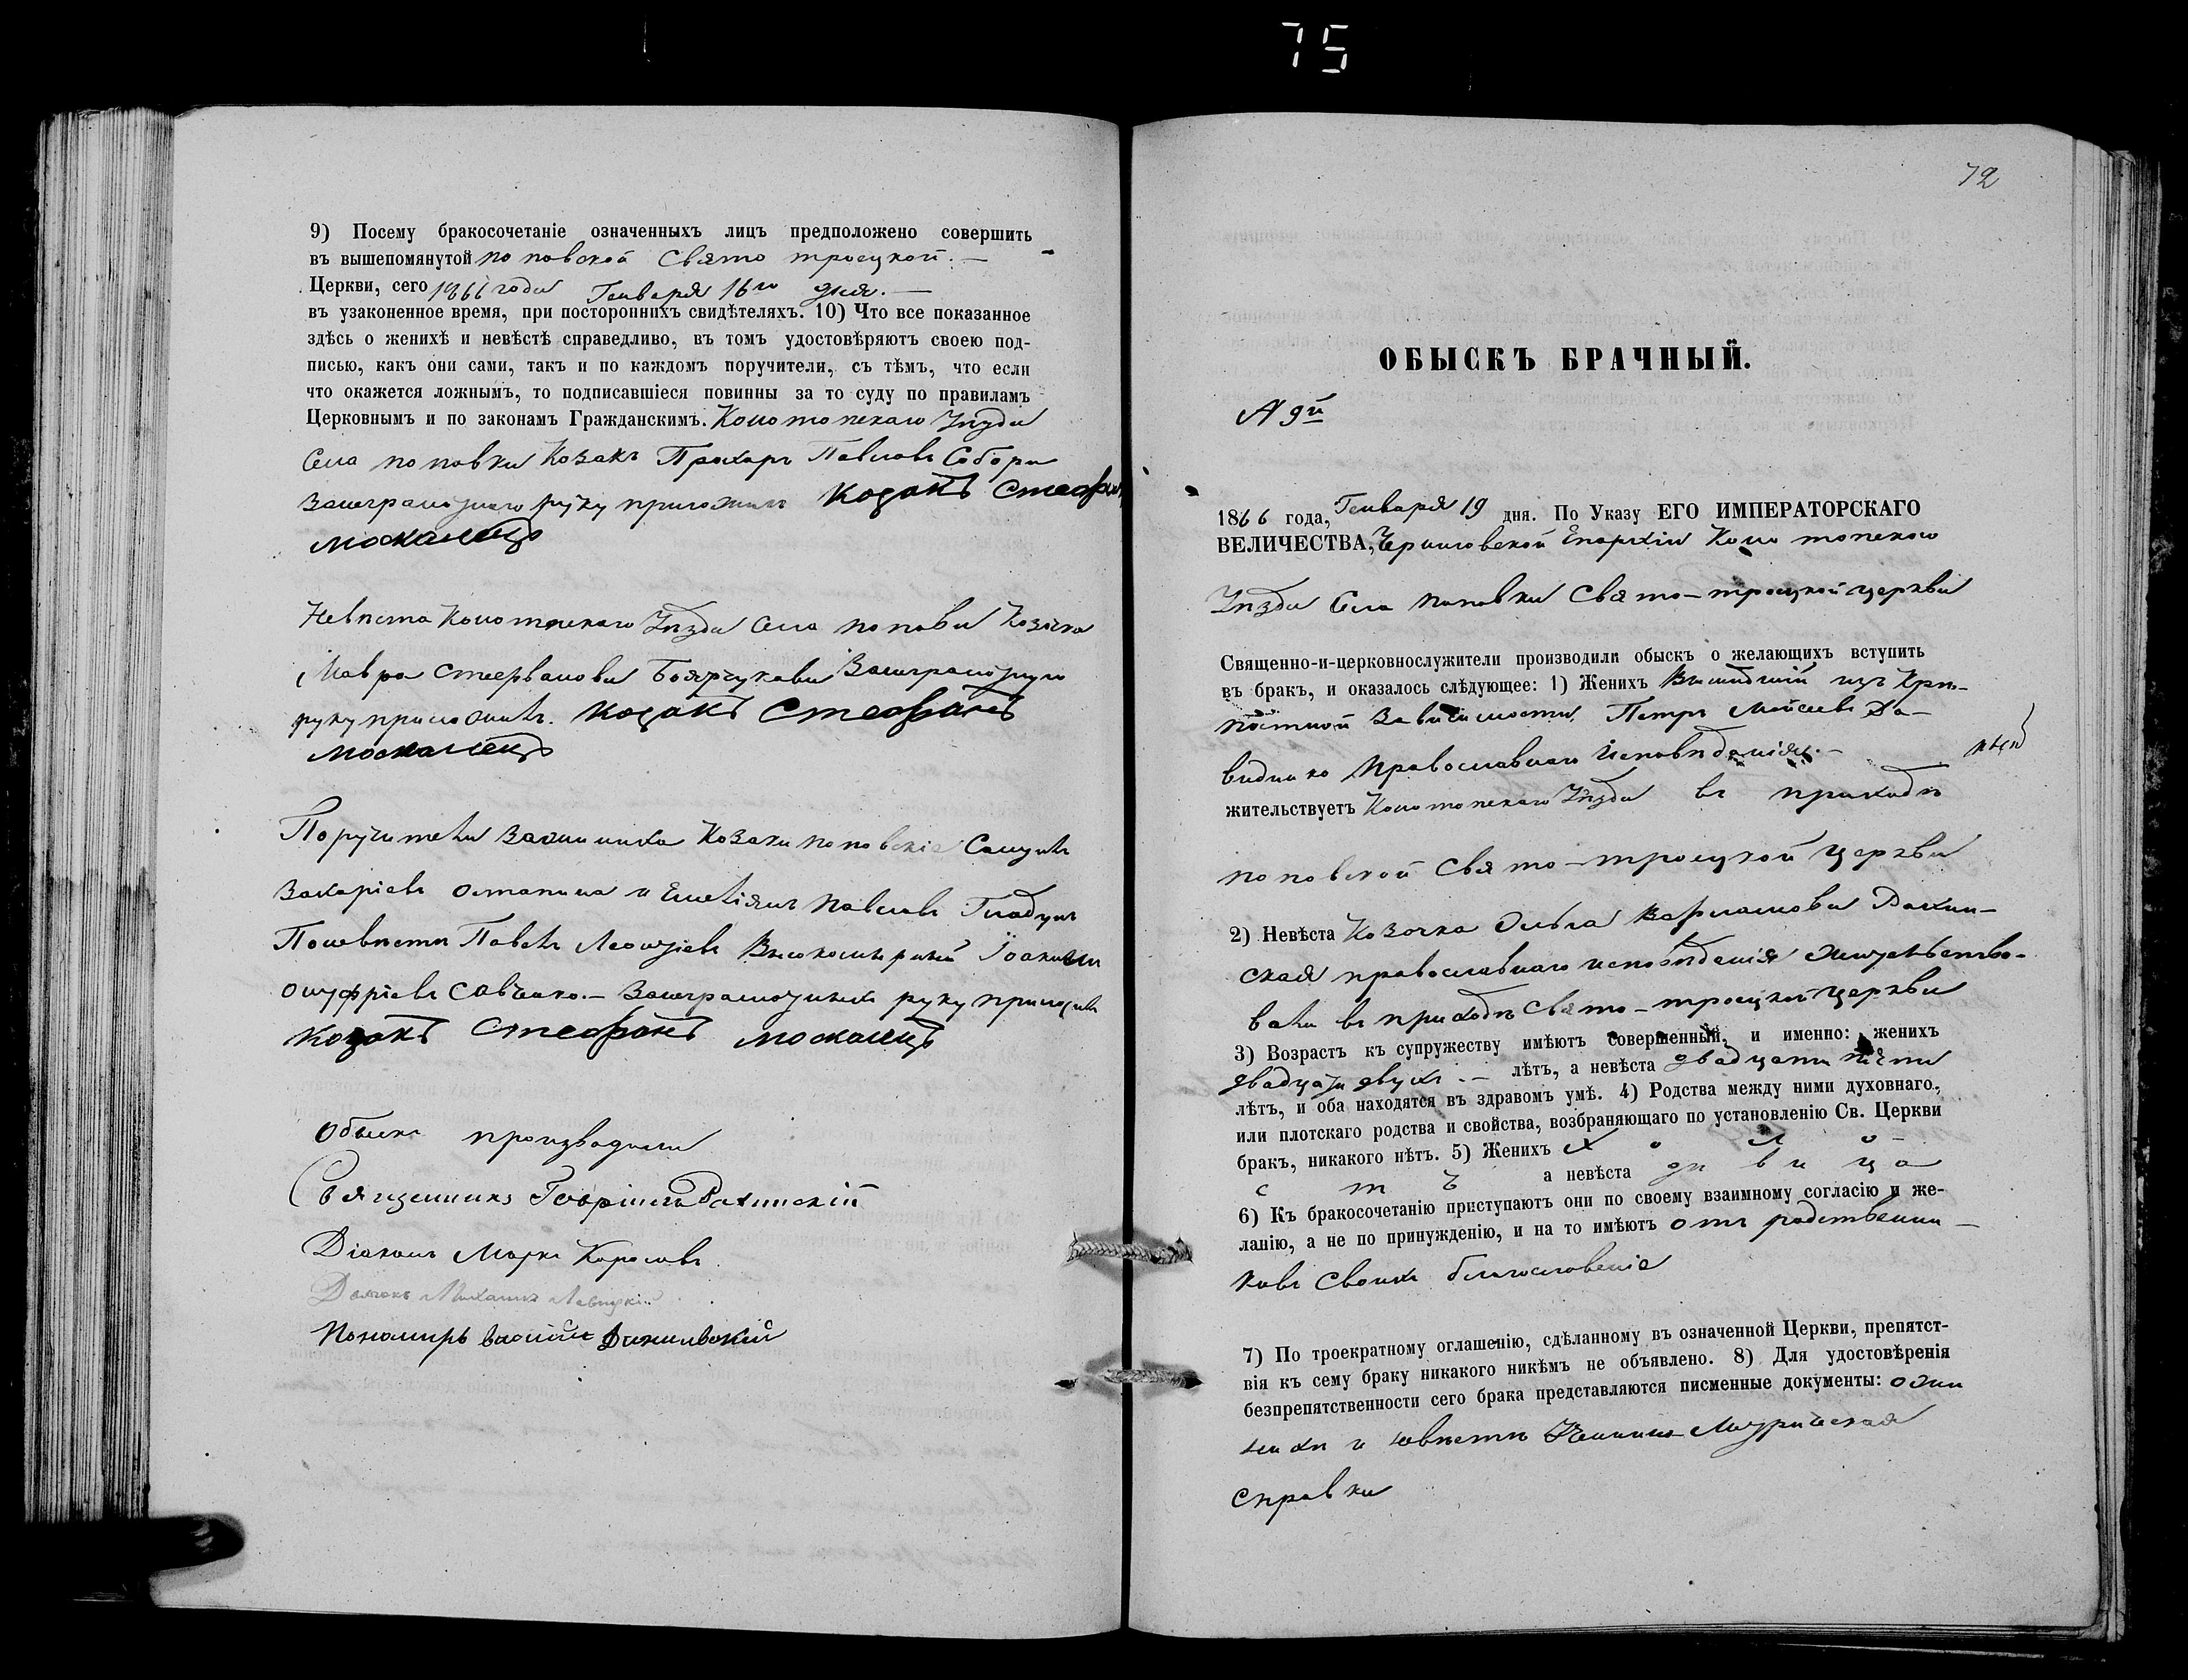 75
9) Посему бракосочетаніе означенныхъ лицъ предположено совершить
въ вышепомянутой поповской Свято троецкой. —
Церкви, сего 1866 года Генваря 16го дня. —
въ узаконенное время, при постороннихъ свидѣтеляхъ. 10) Что все показанное
здѣсь о женихѣ и невѣстѣ справедливо, въ томъ удостовѣряютъ своею под-
писью, какъ они сами, такъ и по каждомъ поручители, съ тѣмъ, что если
что окажется ложнымъ, то подписавшіеся повинны за то суду по правиламъ
Церковнымъ и по законамъ Гражданскимъ. Конотопскаго Уѣзда
Села поповки Козакъ Прохоръ Павловъ
руку приложилъ Козакъ Стефанъ
Москалецъ
Невѣста Конотопскаго Уѣзда Села Козачка
Мавра
руку приложилъ. Козакъ Стефанъ
Москалецъ
Поручители Козаки поповскіе
Захаріевъ и Емеліянъ Павловъ Гладунъ
Павелъ Леонтіевъ
руку приложилъ
Козакъ Стефанъ Москалецъ
Обыскъ производили
Священникъ
Діаконъ Марко
Дьячокъ Михаилъ Левицкій
Пономарь
72
ОБЫСКЪ БРАЧНЫЙ.
1866 года, Генваря 19 дня. По Указу ЕГО ИМПЕРАТОРСКАГО
ВЕЛИЧЕСТВА, Черниговской Епархіи Конотопскаго
Уѣзда Села поповки Свято-троецкой церкви
Священно-и-церковнослужители производили обыскъ о желающихъ вступить
въ бракъ, и оказалось слѣдующее: 1) Женихъ Вышедшій изъ Крѣ-
постной Зависимости Петръ Мойсеевъ Да-
виденко Православнаго Исповѣданія. —
жительствуетъ Конотопскаго Уѣзда въ приходѣ
поповской Свято-троецкой церкви
2) Невѣста Козачка Ольга Варламова
ская православнаго исповѣданія жительство-
вали въ приходѣ Свято-троецкой церкви
3) Возрастъ къ супружеству имѣютъ совершенный, и именно: женихъ
двадцати двухъ. — лѣтъ, а невѣста двадцати пяти
лѣтъ, и оба находятся въ здравомъ умѣ. 4) Родства между ними духовнаго,
или плотскаго родства и свойства, возбраняющаго по установленію Св. Церкви
бракъ, никакого нѣтъ. 5) Женихъ х о л о-
с т ъ а невѣста дѣвица
6) Къ бракосочетанію приступаютъ они по своему взаимному согласію и же-
ланію, а не по принужденію, и на то имѣютъ отъ родственни-
ковъ своихъ благословеніе
7) По троекратному оглашенію, сдѣланному въ означенной Церкви, препятст-
вія къ сему браку никакого никѣмъ не объявлено. 8) Для удостовѣренія
безпрепятственности сего брака представляются писменные документы: о жен
ихѣ и невѣстѣ
справки